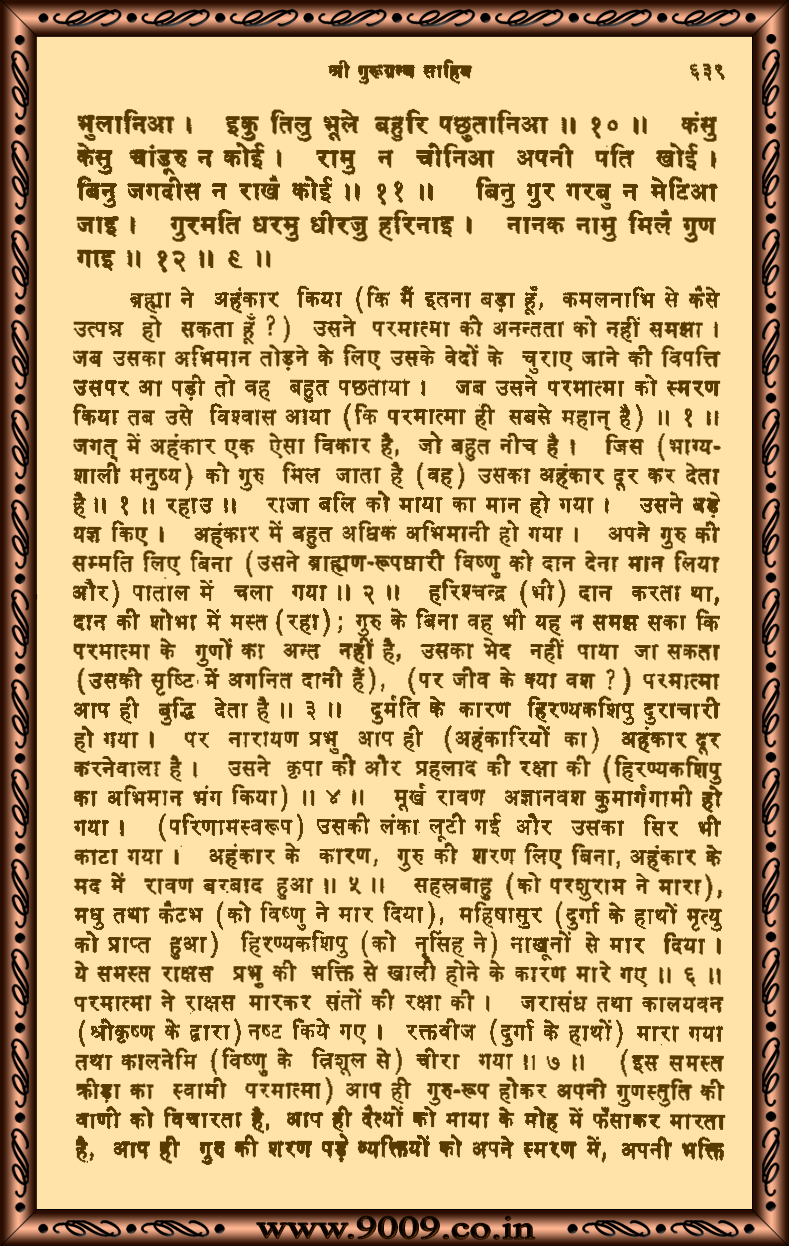 श्री गुरूग्रन्थ साहिब ६३९
भुलानिआ । इकु तिलु भूले बहुरि पछुतानिआ ॥ १० ॥ कंसु
केसु चांडूरु न कोई । रामु न चीनिआ अपनी पति खोई ।
बिनु जगदीस न राखै कोई ॥ ११ ॥ बिनु गुर गरबु न मेटिआ
जाइ । गुरमति धरमु धीरजु हरिनाइ । नानक नामु मिलै गुण
गाइ ॥ १२ ॥ ९ ॥
ब्रह्मा ने अहंकार किया (कि मैं इतना बड़ा हूँ, कमलनाभि से कैसे
उत्पन्न हो सकता हूँ ?) उसने परमात्मा की अनन्तता को नहीं समझा ।
जब उसका अभिमान तोड़ने के लिए उसके वेदों के चुराए जाने की विपत्ति
उसपर आ पड़ी तो वह बहुत पछताया । जब उसने परमात्मा को स्मरण
किया तब उसे विश्वास आया (कि परमात्मा ही सबसे महान् है) ॥ १ ॥
जगत् में अहंकार एक ऐसा विकार है, जो बहुत नीच है । जिस (भाग्य-
शाली मनुष्य) को गुरु मिल जाता है (वह) उसका अहंकार दूर कर देता
है ॥ १ ॥ रहाउ ॥ राजा बलि को माया का मान हो गया । उसने बड़े
यज्ञ किए । अहंकार में बहुत अधिक अभिमानी हो गया । अपने गुरु की
सम्मति लिए बिना (उसने ब्राह्मण-रूपधारी विष्णु को दान देना मान लिया
और) पाताल में चला गया ॥ २ ॥ हरिश्चन्द्र (भी) दान करता था,
दान की शोभा में मस्त (रहा); गुरु के बिना वह भी यह न समझ सका कि
परमात्मा के गुणों का अन्त नहीं है, उसका भेद नहीं पाया जा सकता
(उसकी सृष्टि में अगनित दानी हैं), (पर जीव के क्या वश ?) परमात्मा
आप ही बुद्धि देता है ॥ ३ ॥ दुर्मति के कारण हिरण्यकशिपु दुराचारी
हो गया । पर नारायण प्रभु आप ही (अहंकारियों का) अहंकार दूर
करनेवाला है । उसने कृपा की और प्रहलाद की रक्षा की (हिरण्यकशिपु
का अभिमान भंग किया) ॥ ४ ॥ मूर्ख रावण अज्ञानवश कुमार्गगामी हो
गया । (परिणामस्वरूप) उसकी लंका लूटी गई और उसका सिर भी
काटा गया । अहंकार के कारण, गुरु की शरण लिए बिना, अहंकार के
मद में रावण बरबाद हुआ ॥ ५ ॥ सहस्रबाहु (को परशुराम ने मारा),
मधु तथा कैटभ (को विष्णु ने मार दिया), महिषासुर (दुर्गा के हाथों मृत्यु
को प्राप्त हुआ) हिरण्यकशिपु (को नृसिंह ने) नाखूनों से मार दिया ।
ये समस्त राक्षस प्रभु की भक्ति से खाली होने के कारण मारे गए ॥ ६ ॥
परमात्मा ने राक्षस मारकर संतों की रक्षा की । जरासंध तथा कालयवन
(श्रीकृष्ण के द्वारा) नष्ट किये गए । रक्तबीज (दुर्गा के हाथों) मारा गया
तथा कालनेमि (विष्णु के त्रिशूल से) चीरा गया ॥ ७ ॥ (इस समस्त
क्रीड़ा का स्वामी परमात्मा) आप ही गुरु-रूप होकर अपनी गुणस्तुति की
वाणी को विचारता है, आप ही दैत्यों को माया के मोह में फँसाकर मारता
है, आप ही गुरु की शरण पड़े व्यक्तियों को अपने स्मरण में, अपनी भक्ति
www.9009.co.in